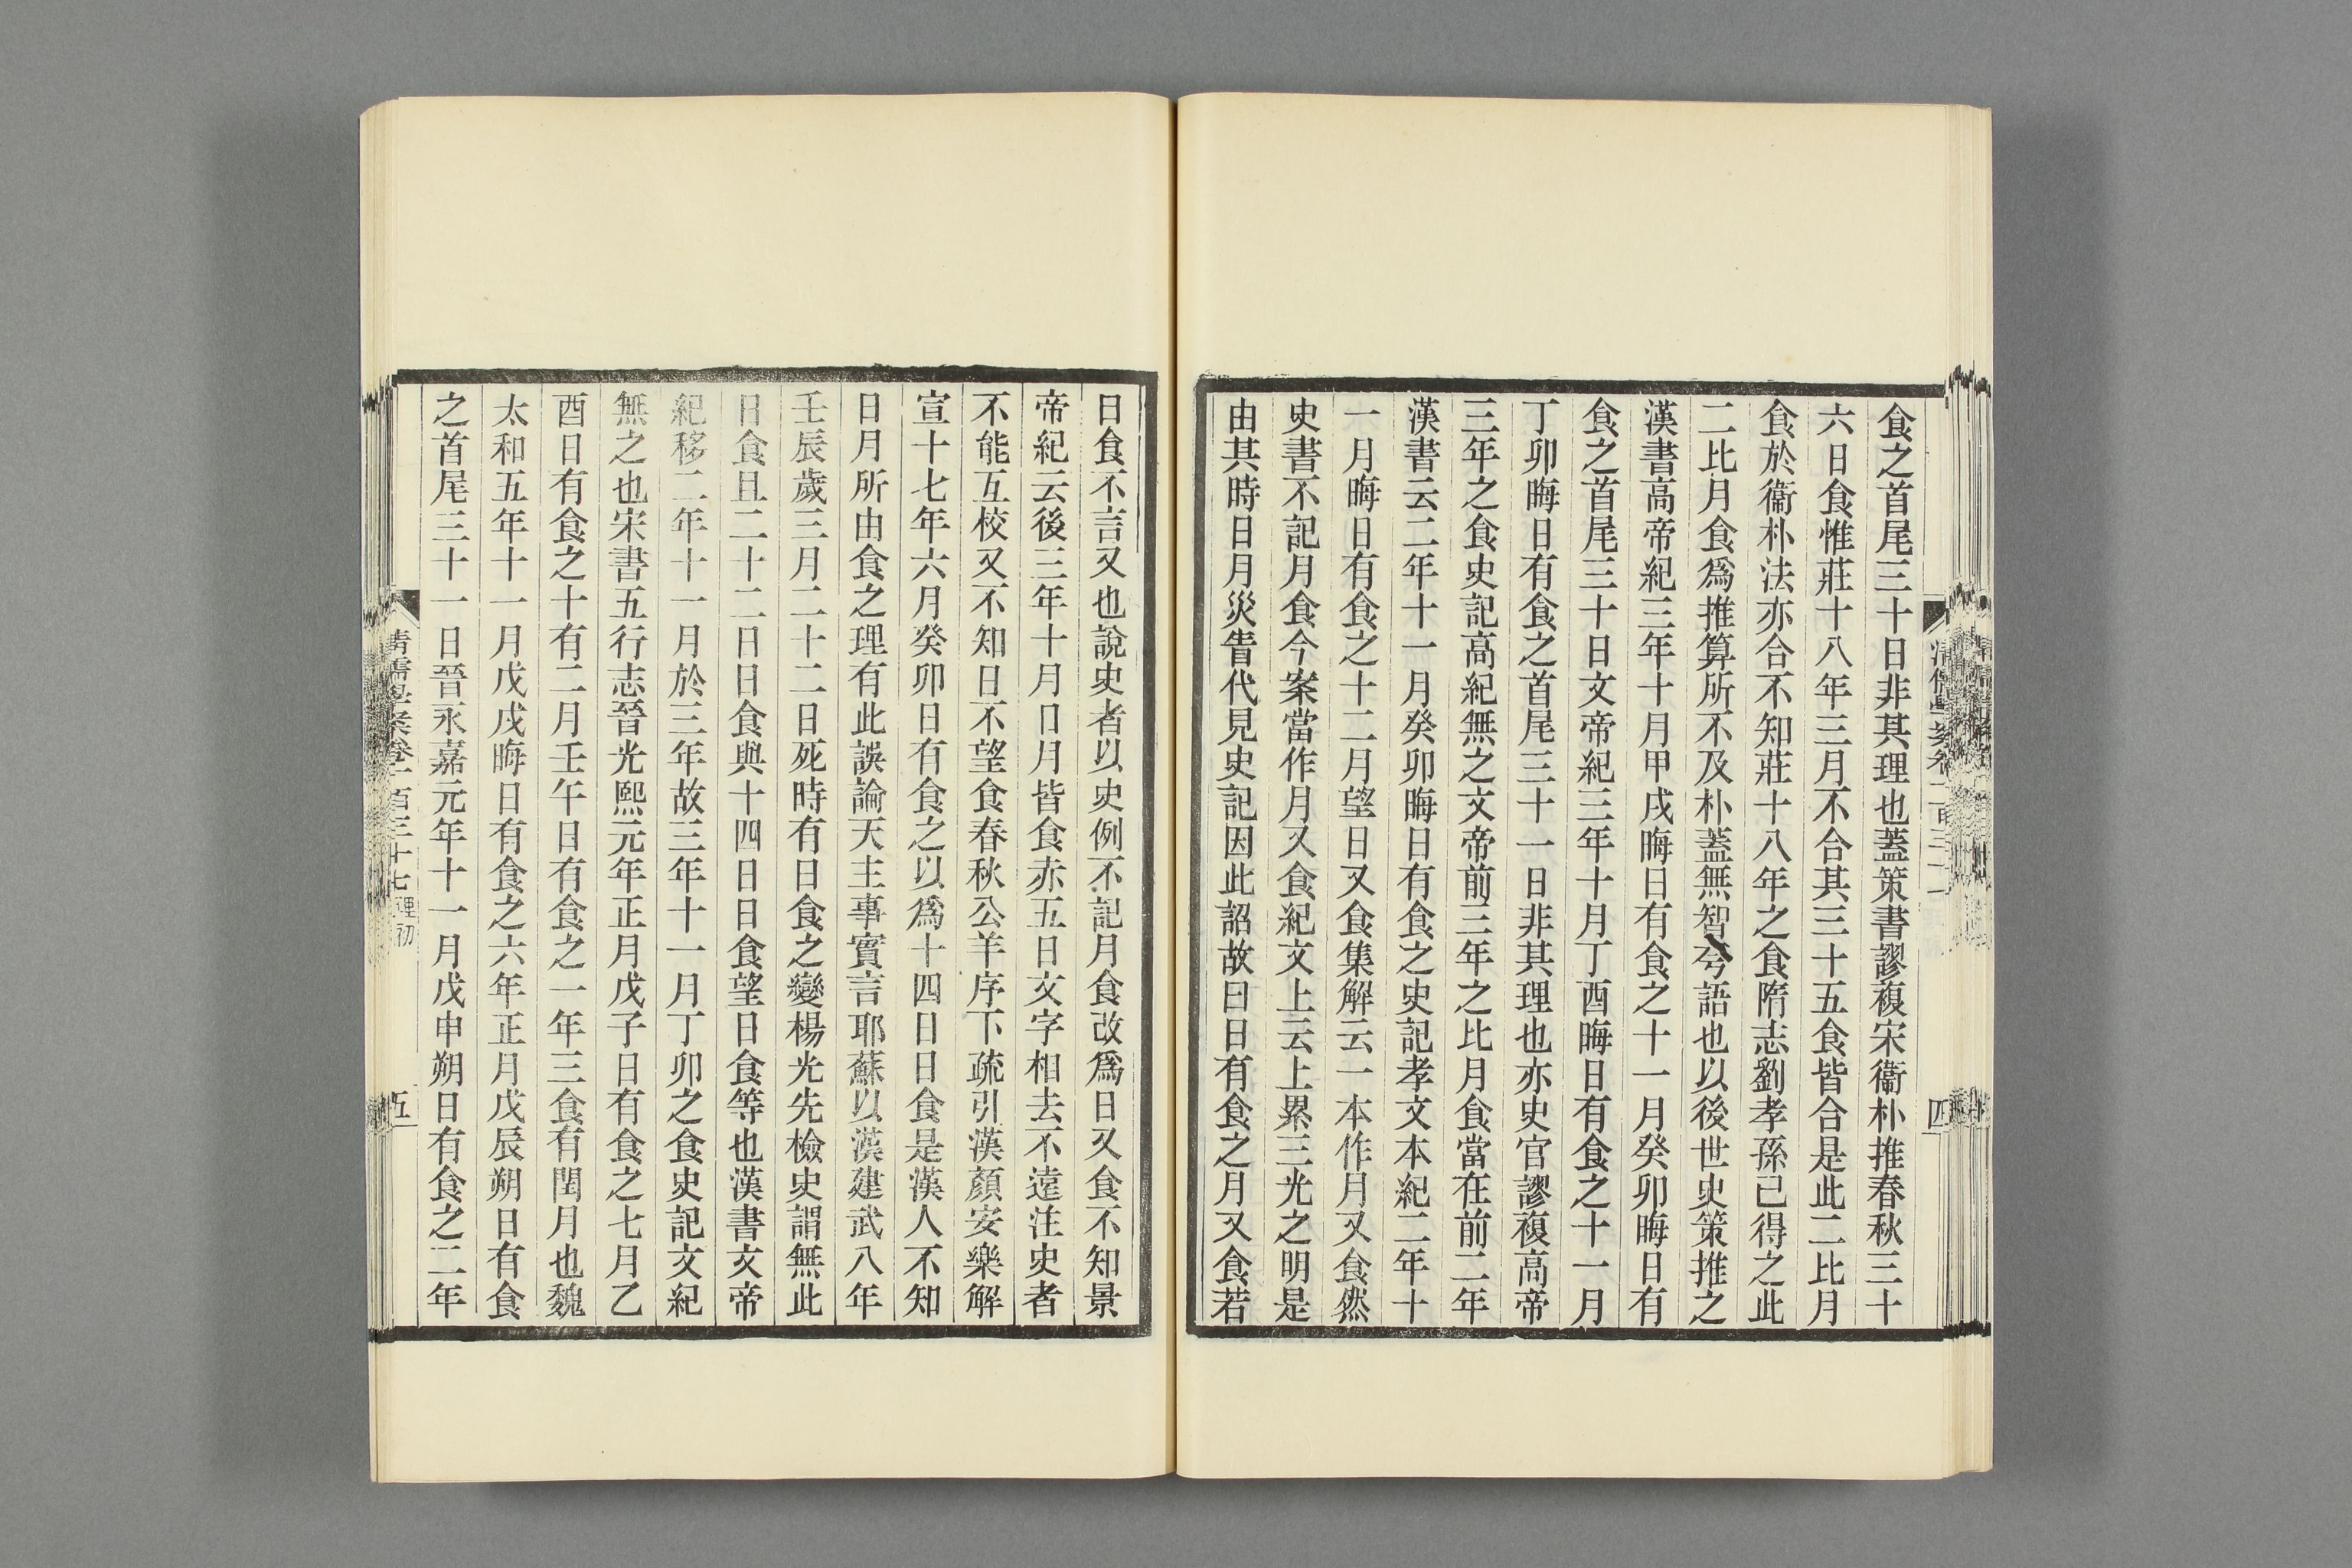 食之首尾三十日非其理也蓋策書謬複宋衞朴推春秋三十
六日食惟莊十八年三月不合其三十五食皆合是此二比月
食於衞朴法亦合不知莊十八年之食隋志劉孝孫已得之此
二比月食爲推算所不及朴蓋無智夸語也以後世史策推之
漢書高帝紀三年十月甲戌晦日有食之十一月癸卯晦日有
食之首尾三十日文帝紀三年十月丁酉晦日有食之十一月
丁卯晦日有食之首尾三十一日非其理也亦史官謬複高帝
三年之食史記高紀無之文帝前三年之比月食當在前二年
漢書云二年十一月癸卯晦日有食之史記孝文本紀二年十
一月晦日有食之十二月望日又食集解云一本作月又食然
史書不記月食今案當作月又食紀文上云上累三光之明是
由其時日月災眚代見史記因此詔故曰日有食之月又食若
四
日食不言又也說史者以史例不記月食改爲日又食不知景
帝紀云後三年十月日月皆食赤五日文字相去不遠注史者
不能互校又不知日不望食春秋公羊序下疏引漢顏安樂解
宣十七年六月癸卯日有食之以爲十四日日食是漢人不知
日月所由食之理有此誤論天主事實言耶蘇以漢建武八年
壬辰歲三月二十二日死時有日食之變楊光先檢史謂無此
日食且二十二日日食與十四日日食望日食等也漢書文帝
紀移二年十一月於三年故三年十一月丁卯之食史記文紀
無之也宋書五行志晉光熙元年正月戊子日有食之七月乙
酉日有食之十有二月壬午日有食之一年三食有閏月也魏
太和五年十一月戊戌晦日有食之六年正月戊辰朔日有食
之首尾三十一日晉永嘉元年十一月戊申朔日有食之二年
清儒學案卷一百三十七 理初
五